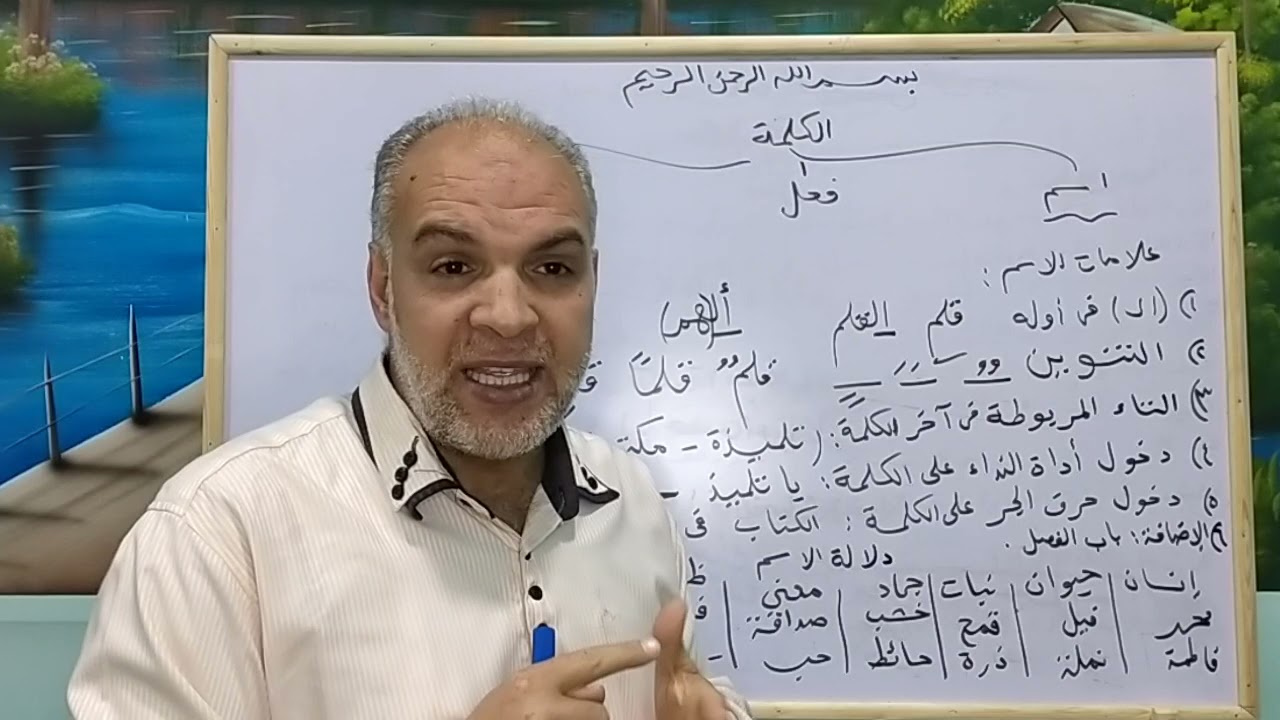 بسم الله الرحمن الرحيم
الكلمة
اسم فعل
علامات الاسم :
١) (ال) فى أوله قلم القلم (ألهم)
٢) التنوين قلمٌ قلمًا
٣) التاء المربوطة فى آخر الكلمة: (تلميذة -
٤) دخول أداة النداء على الكلمة: يا تلميذ -
٥) دخول حرف الجر على الكلمة: الكتاب فى
٦) الإضافة: باب الفصل .
دلالة الاسم
إنسان حيوان نبات جماد معنى
محمد فيل قمح خشب صداقة
فاطمة نملة ذرة حائط حب